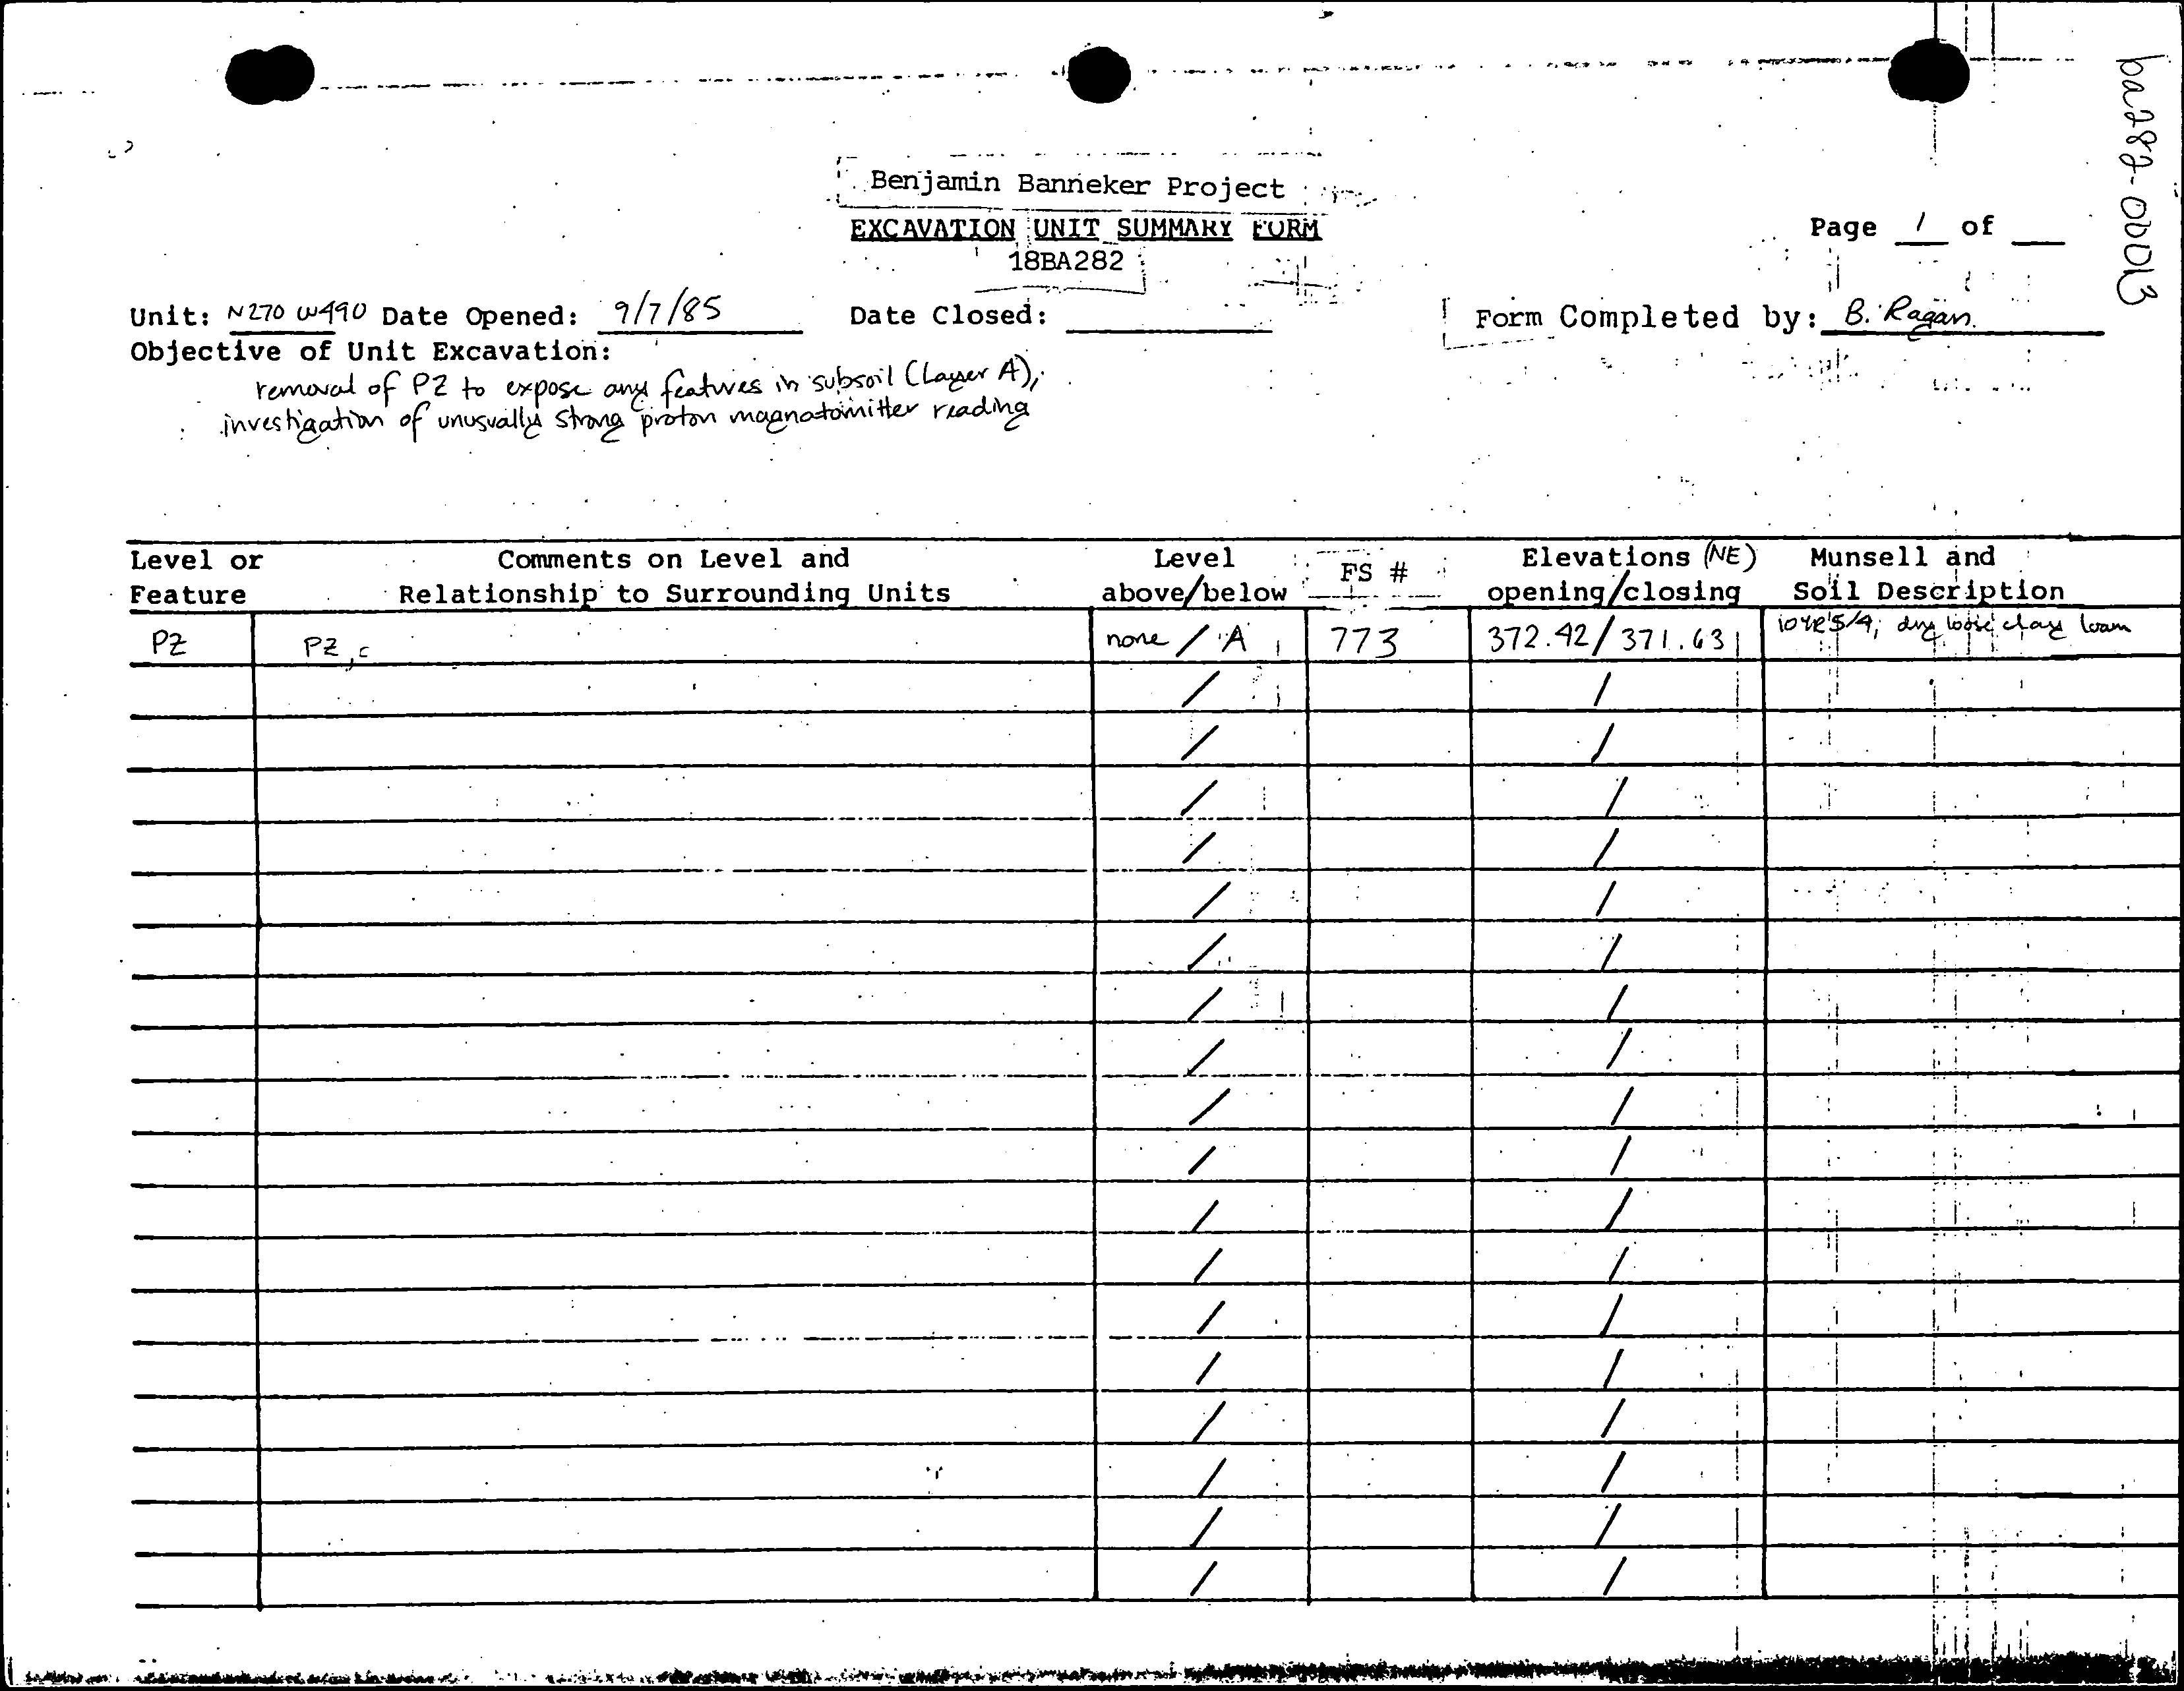 ba282-00013
Benjamin Banneker Project
EXCAVATION UNIT SUMMARY FORM
18BA282
Page 1 of
Unit: N270 W490 Date Opened: 9/7/85 Date Closed: Form Completed by: B. Ragan
Objective of Unit Excavation:
removal of PZ to expose any features in subsoil (Layer A);
investigation of unusually strong proton magnatomitter reading
Level or Comments on Level and Level FS # Elevations (NE) Munsell and
Feature Relationship to Surrounding Units above/below opening/closing Soil Description
PZ PZ, none / A 773 372.42/371.63 10YR5/4; dry loose clay loam
/ /
/ /
/ /
/ /
/ /
/ /
/ /
/ /
/ /
/ /
/ /
/ /
/ /
/ /
/ /
/ /
/ /
/ /